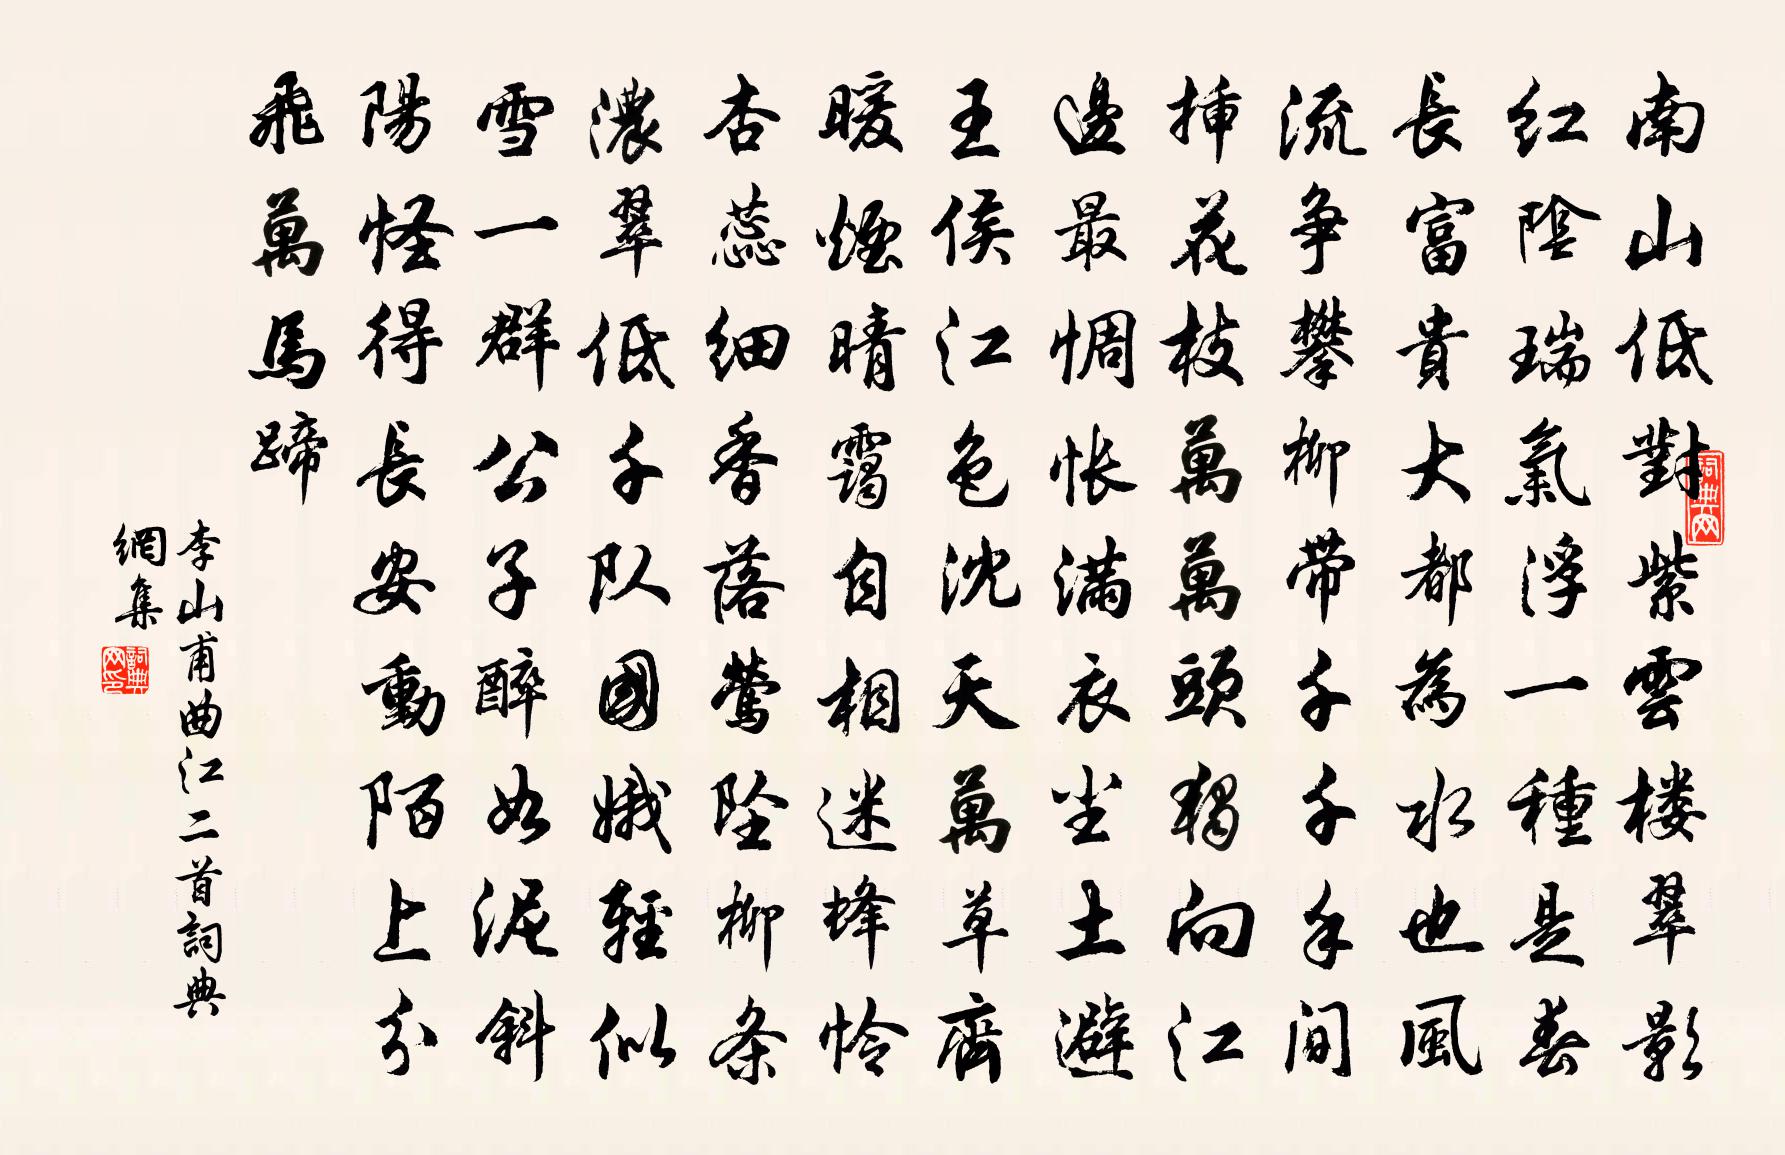 南山低對紫雲楼翠影
红陰瑞氣浮一種是春
長富貴大都為水也風
流争攀柳带千千手間
揷花枝萬萬頭獨向江
邊最惆怅滿衣尘土避
王侯江色沈天萬草齊
暖煙晴靄自相迷蜂怜
杏蕊细香落鶯坠柳条
濃翠低千队國娥輕似
雪一群公子醉如泥斜
陽怪得長安動陌上分
飛萬馬蹄
李山甫曲江二首詞典
網集
詞典网
詞典网印